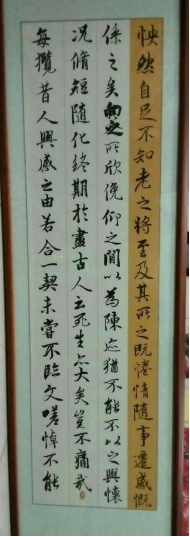 怏然自足不知老之將至及其所之既惓情隨事遷感慨
係之矣向之所欣俛仰之間以為陳迹猶不能不以之興懷
況脩短隨化終期於盡古人云死生亦大矣豈不痛哉
每攬昔人興感之由若合一契未嘗不臨文嗟悼不能